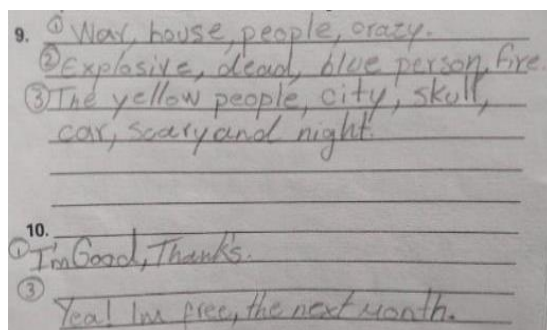 9. ① War, house, people, crazy.
② Explosive, dead, blue person, fire.
③ The yellow people, city, skull,
car, scary and night.
10.
① I'm Good, Thank's.
③
Yea! Im free, the next month.